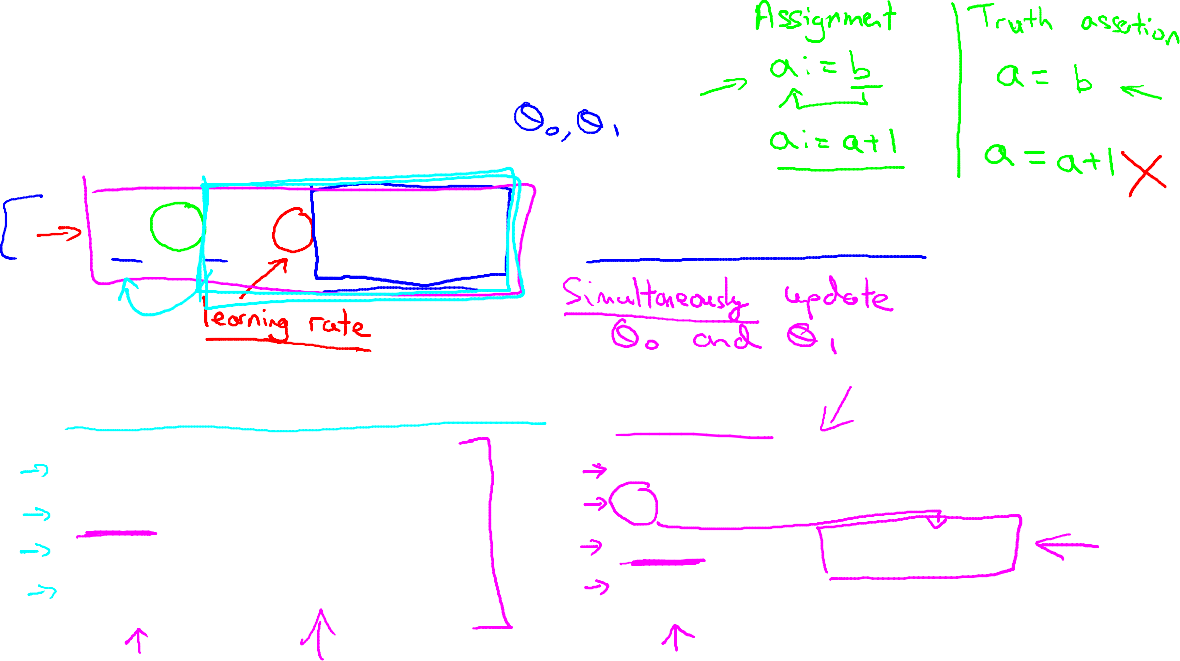 Assignment
a := b
a := a+1
Truth assertion
a = b
a = a+1
θ₀, θ₁
learning rate
Simultaneously update
θ₀ and θ₁